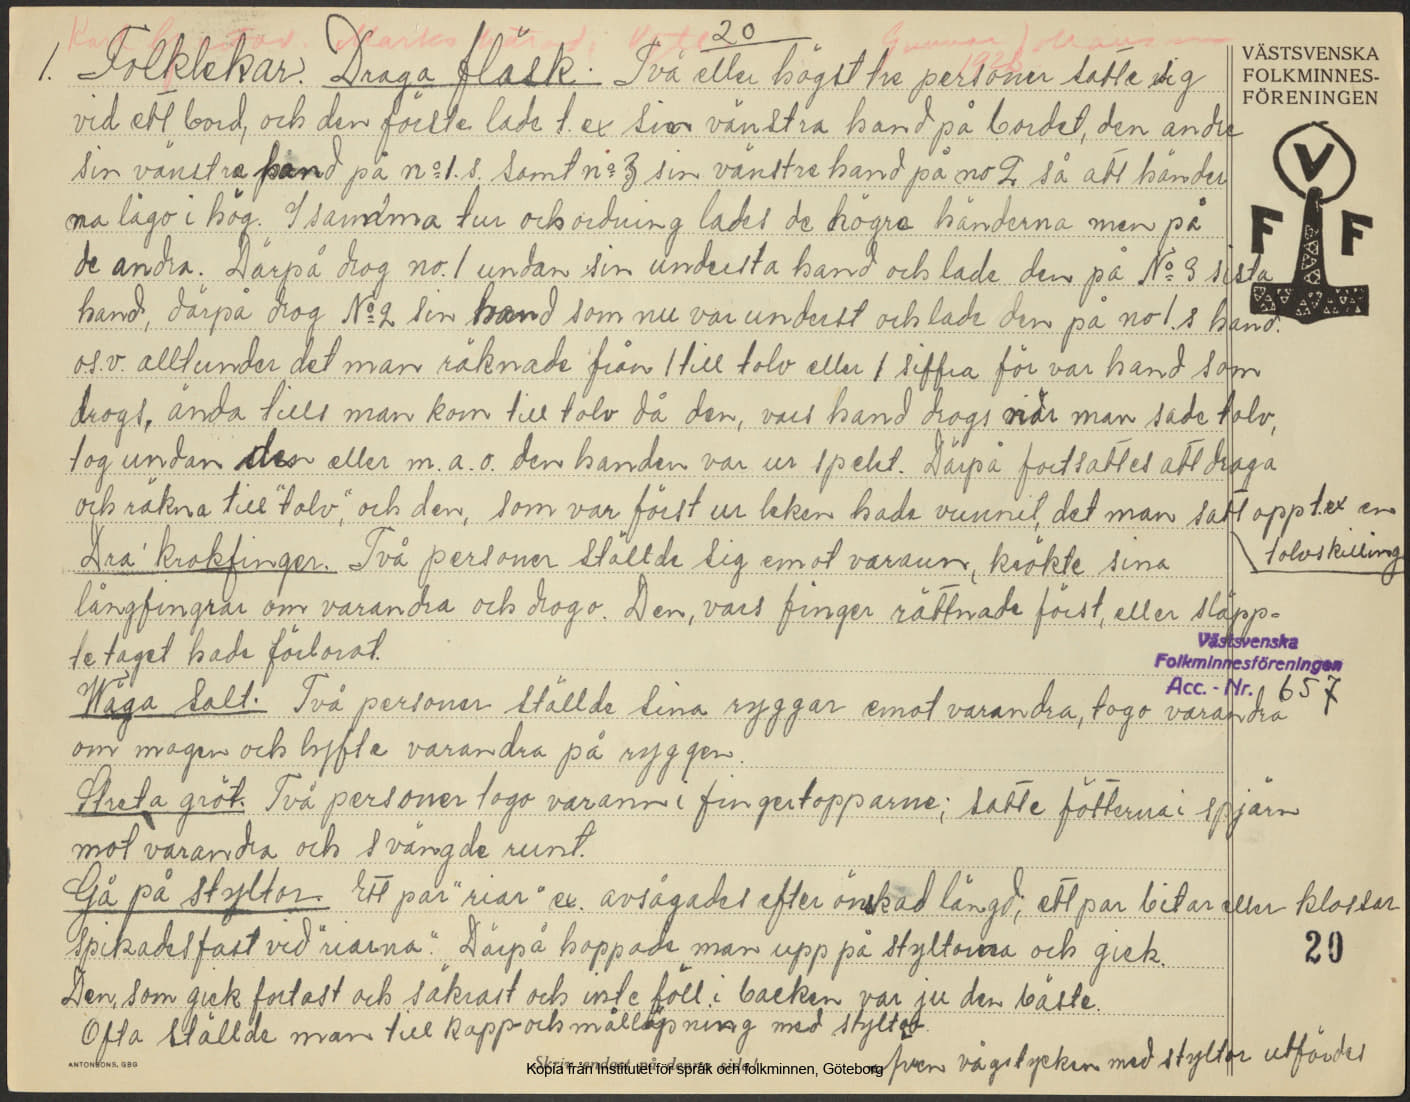 20
1. Folklekar. Draga fläsk. Två eller högst tre personer satte sig
vid ett bord, och den förste lade t. ex sin vänstra hand på bordet, den andre
sin vänstra hand på nº 1. s. samt nº 3 sin vänstre hand på no 2 så att händer
na lågo i hög. I samma tur och ordning lades de högra händerna men på
de andra. Därpå drog no. 1 undan sin understa hand och lade den på Nº 3 sista
hand, därpå drog Nº 2 sin hand som nu var underst och lade den på no 1. s hand.
o.s.v. allt under det man räknade från 1 till tolv eller 1 siffra för var hand som
drogs, ända tills man kom till tolv då den, vars hand drogs när man sade tolv,
tog undan den eller m. a. o. den handen var ur spelet. Därpå fortsattes att draga
och räkna till "tolv", och den, som var först ur leken hade vunnit, det man satt opp t.ex en
tolvskilling
Dra' krokfinger. Två personer ställde sig emot varann, krökte sina
långfingrar om varandra och drogo. Den, vars finger rättnade först, eller släpp-
te taget hade förlorat.
Wåga Salt. Två personer ställde sina ryggar emot varandra, togo varandra
om magen och lyfte varandra på ryggen.
Streta gröt. Två personer togo varann i fingertopparne; satte fötterna i spjärn
mot varandra och svängde runt.
Gå på styltor. Ett par "riar" ex. avsågades efter önskad längd, ett par bitar eller klossar
spikades fast vid "riarna". Därpå hoppade man upp på styltorna och gick.
Den, som gick fortast och säkrast och inte föll i backen var ju den bäste.
Ofta ställde man till kapp- och mållöpning med styltor.
även vågstycken med styltor utfördes
VÄSTSVENSKA
FOLKMINNES-
FÖRENINGEN
V
F F
Västsvenska
Folkminnesföreningen
Acc. - Nr. 657
20
ANTONSONS, GBG
Skriv endast på denna sida!
Kopia från Institutet för språk och folkminnen, Göteborg